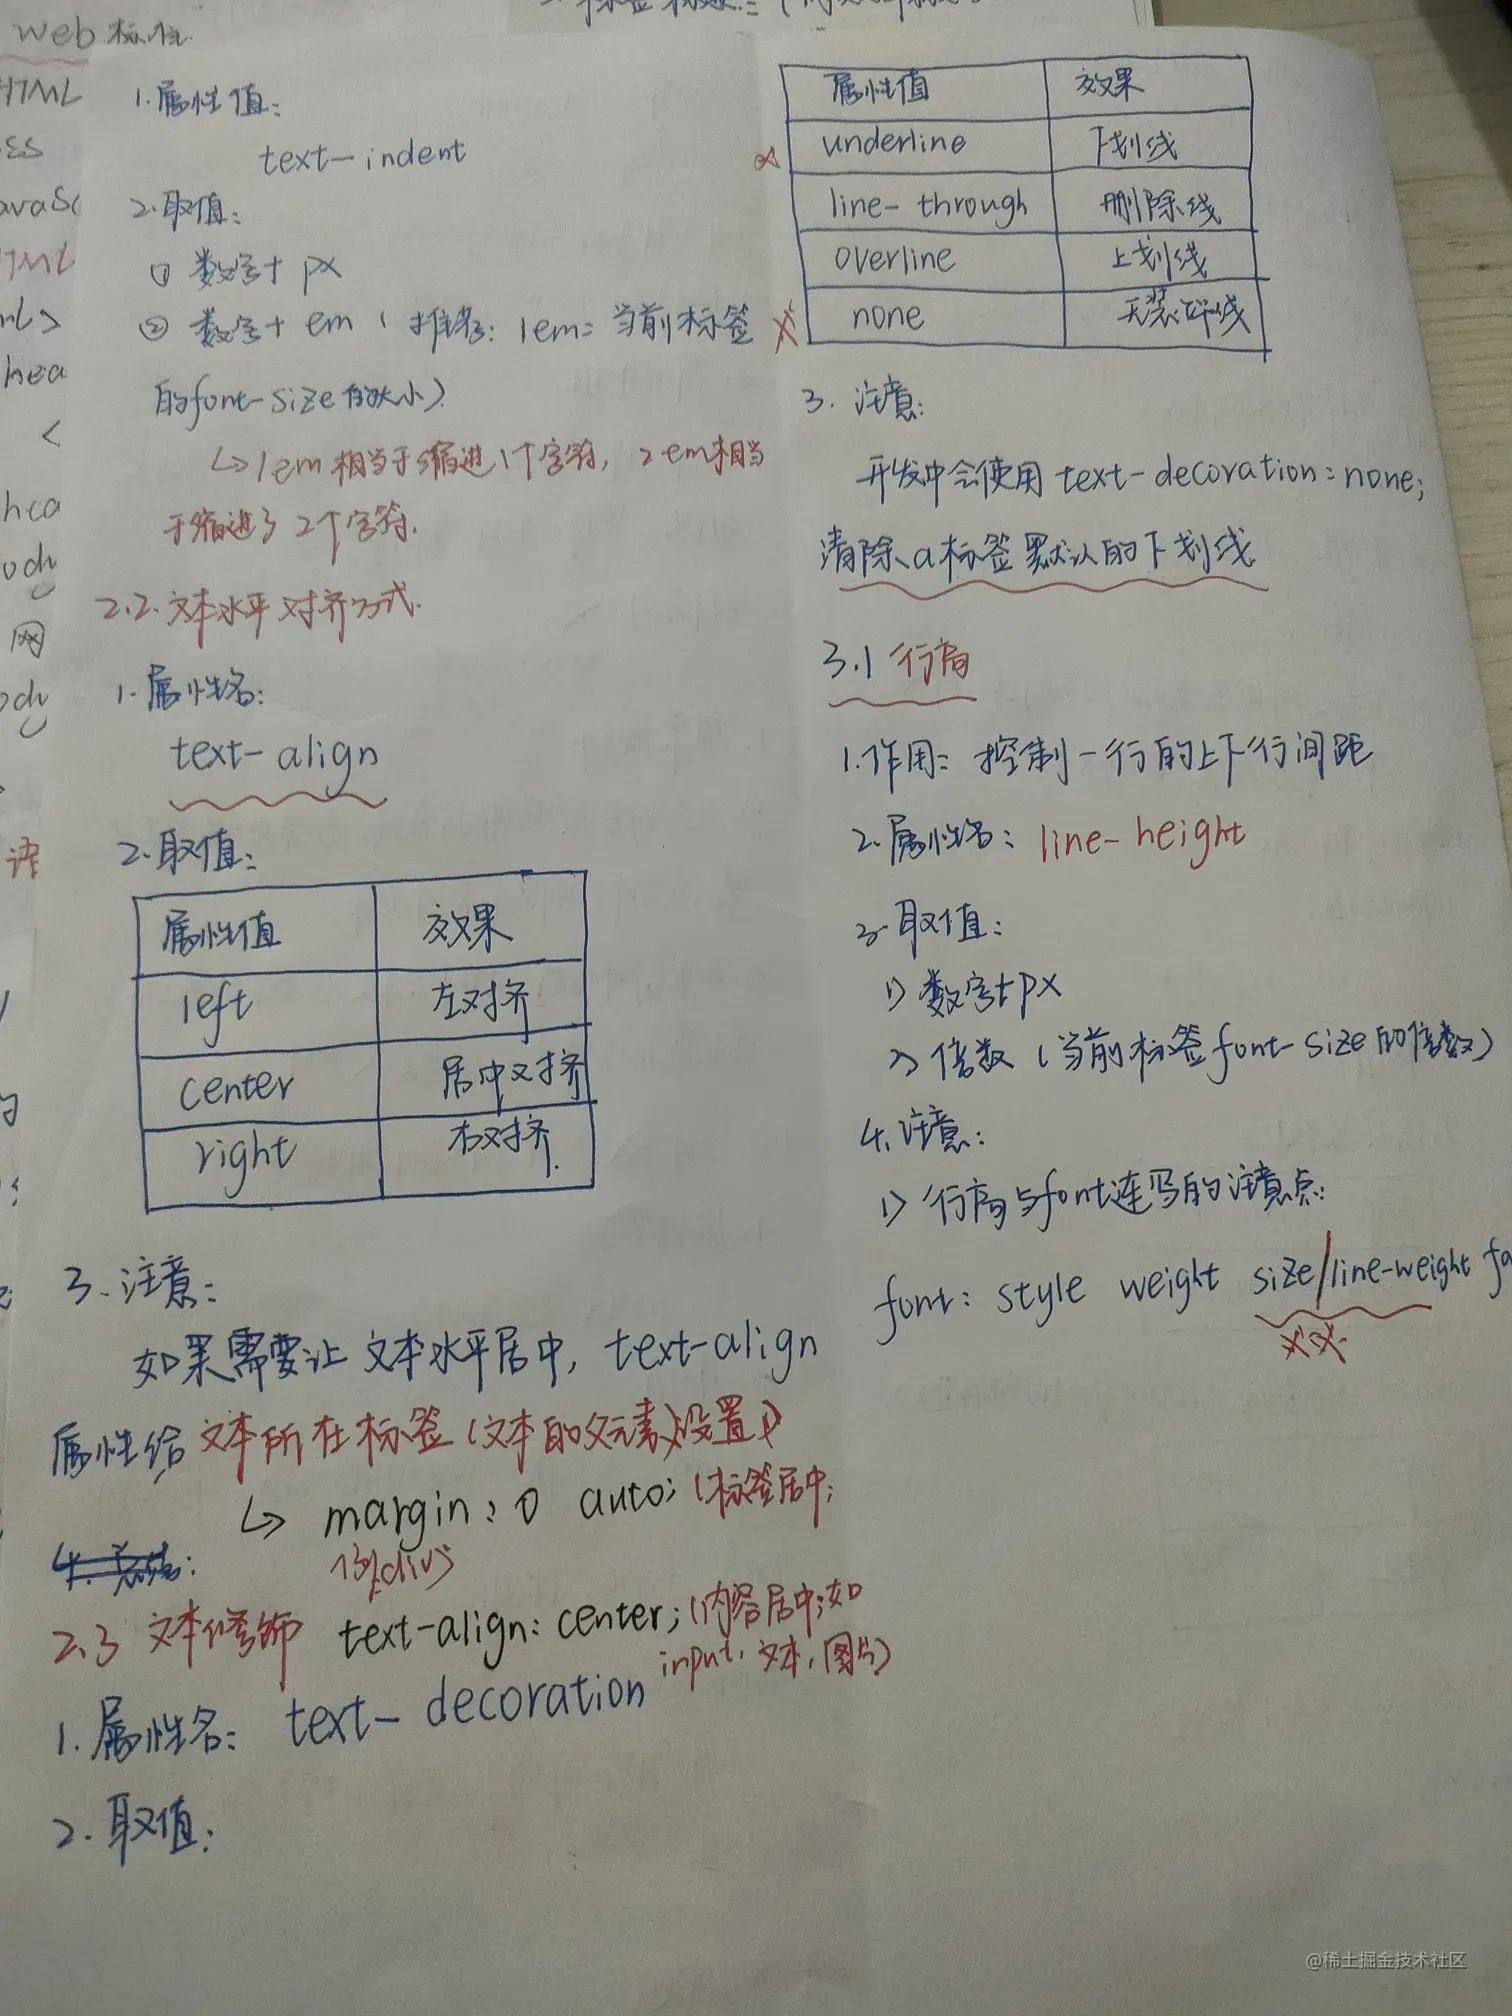 web 标准
HTML
1.属性值:
text-indent
2.取值:
① 数字+px
② 数字+em(推荐:1em=当前标签
的font-size的大小)
↳1em相当于缩进1个字符,2em相当
于缩进了2个字符.
2.2.文本水平对齐方式.
1.属性名:
text-align
2.取值:
属性值 效果
left 左对齐
center 居中对齐
right 右对齐.
3.注意:
如果需要让文本水平居中,text-align
属性给文本所在标签(文本的父元素)设置
↳ margin:0 auto;(标签居中;
例div)
2.3 文本修饰 text-align:center;(内容居中;如
input,文本,图片)
1.属性名: text-decoration
2.取值:
属性值 效果
underline 下划线
line-through 删除线
overline 上划线
none 无装饰线
3.注意:
开发中会使用text-decoration:none;
清除a标签默认的下划线
3.1 行高
1.作用:控制一行的上下行间距
2.属性名: line-height
3.取值:
1>数字+px
2>倍数(当前标签font-size的倍数)
4.注意:
1>行高与font连写的注意点:
font: style weight size/line-weight fa
@稀土掘金技术社区